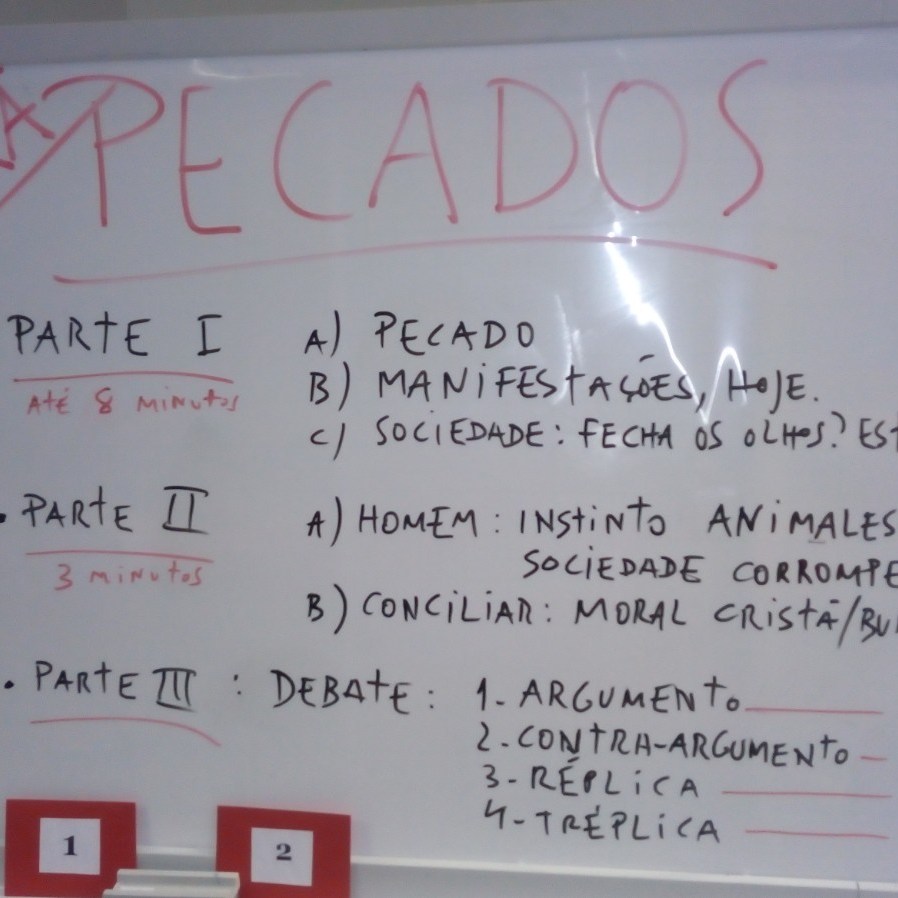 PECADOS
PARTE I
ATÉ 8 MINUTOS
A) PECADO
B) MANIFESTAÇÕES, HOJE.
C) SOCIEDADE: FECHA OS OLHOS?
PARTE II
3 MINUTOS
A) HOMEM: INSTINTO ANIMALES
SOCIEDADE CORROMPE
B) CONCILIAR: MORAL CRISTÃ/
PARTE III : DEBATE: 1- ARGUMENTO
2-CONTRA-ARGUMENTO
3-RÉPLICA
4-TRÉPLICA
1
2